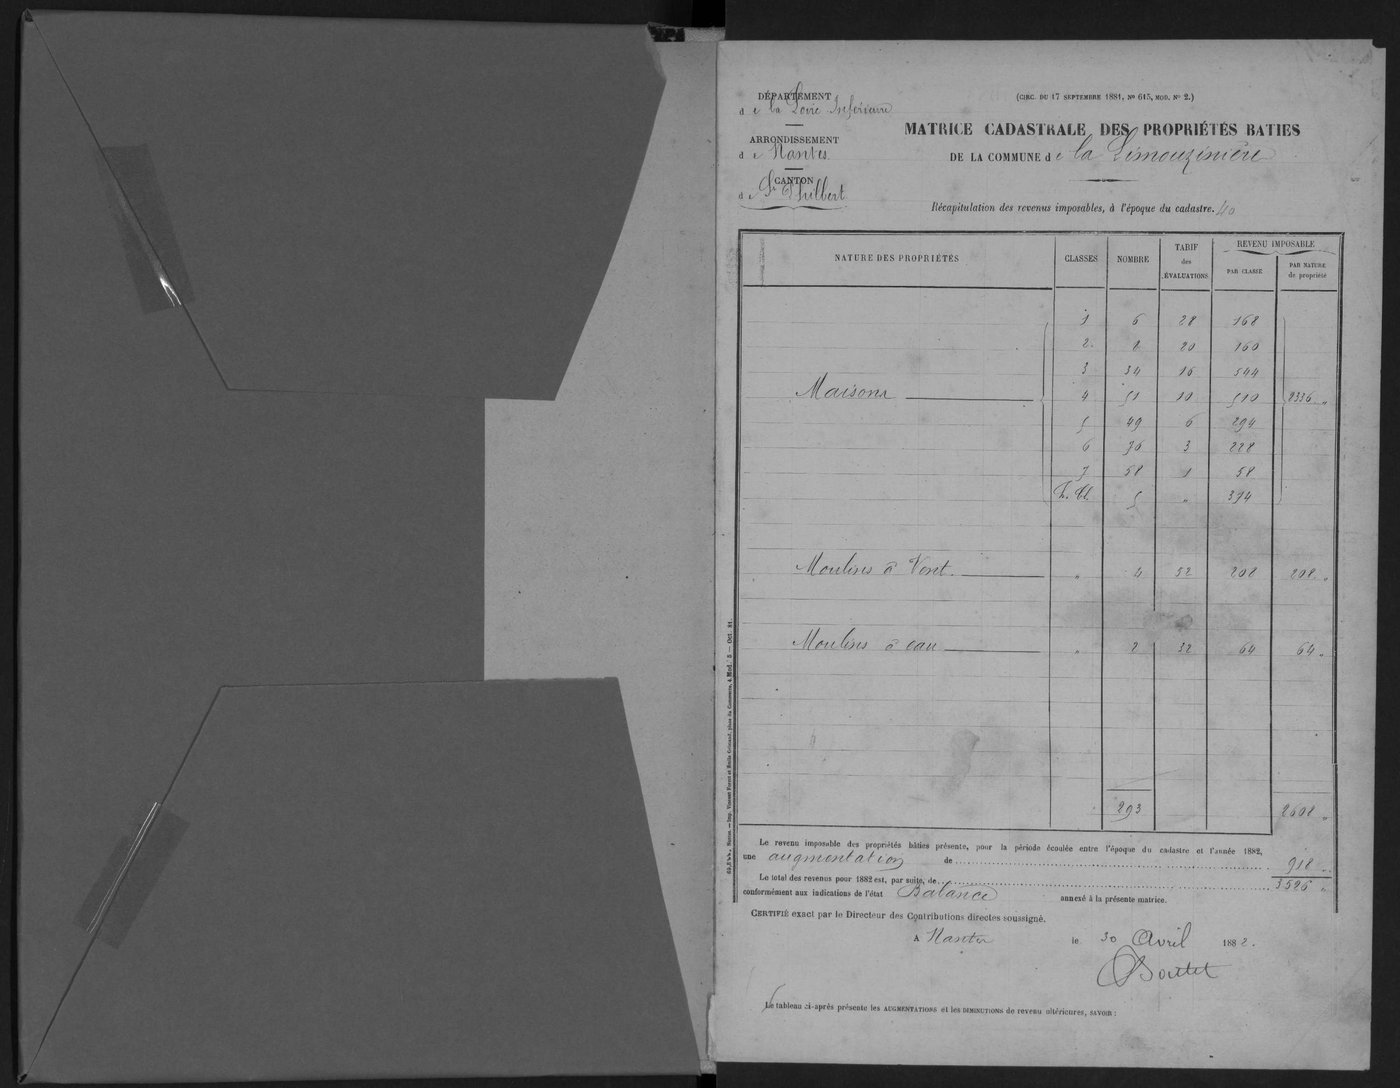 DÉPARTEMENT
de la Loire Inférieure
ARRONDISSEMENT
de Nantes
CANTON
de St Philbert
(CIRC. DU 17 SEPTEMBRE 1881, No 615, MOD. No 2.)
MATRICE CADASTRALE DES PROPRIÉTÉS BATIES
DE LA COMMUNE de la Limouzinière
Récapitulation des revenus imposables, à l'époque du cadastre. 40
NATURE DES PROPRIÉTÉS CLASSES NOMBRE TARIF des ÉVALUATIONS REVENU IMPOSABLE PAR CLASSE PAR NATURE de propriété
1 6 28 168
2 8 20 160
3 34 16 544
Maisons 4 51 10 510 2336 "
5 49 6 294
6 76 3 228
7 58 1 58
h. Cl. 5 " 394
Moulins à Vent " 4 52 208 208 "
Moulins à eau " 2 32 64 64 "
293 2608 "
Le revenu imposable des propriétés bâties présente, pour la période écoulée entre l'époque du cadastre et l'année 1882,
une augmentation de 918 "
Le total des revenus pour 1882 est, par suite, de 3526 "
conformément aux indications de l'état Balance annexé à la présente matrice.
CERTIFIÉ exact par le Directeur des Contributions directes soussigné.
A Nantes le 30 Avril 1882.
Boutet
Le tableau ci-après présente les AUGMENTATIONS et les DIMINUTIONS de revenu ultérieures, SAVOIR :